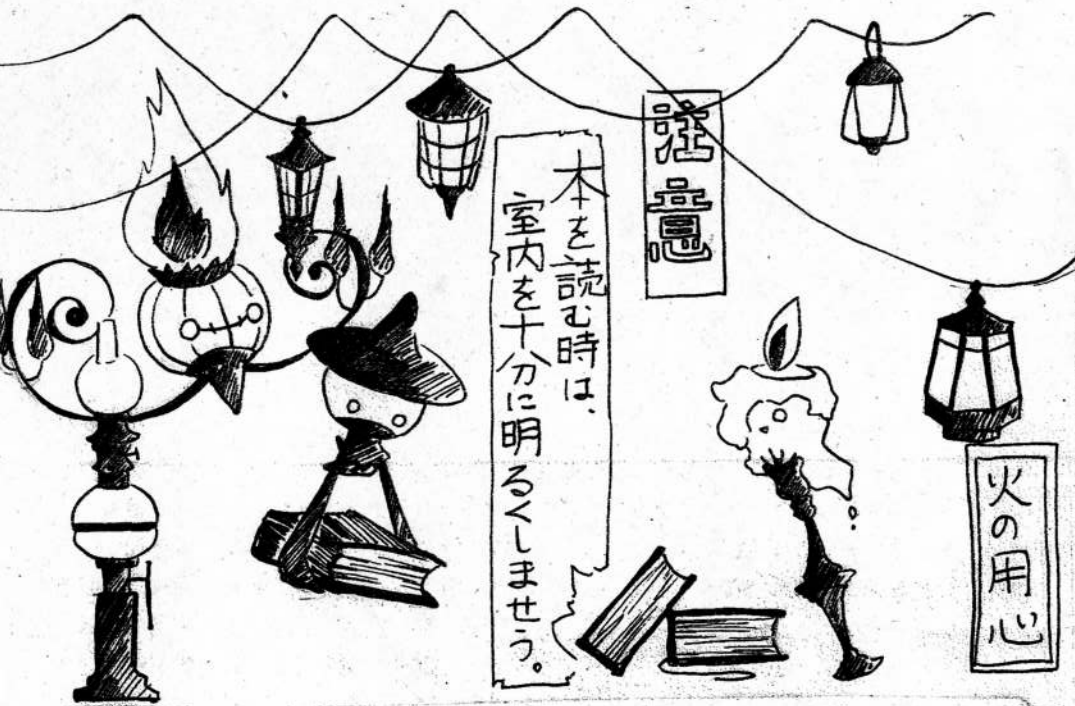 注意
本を読む時は、
室内を十分に明るくしませう。
火の用心